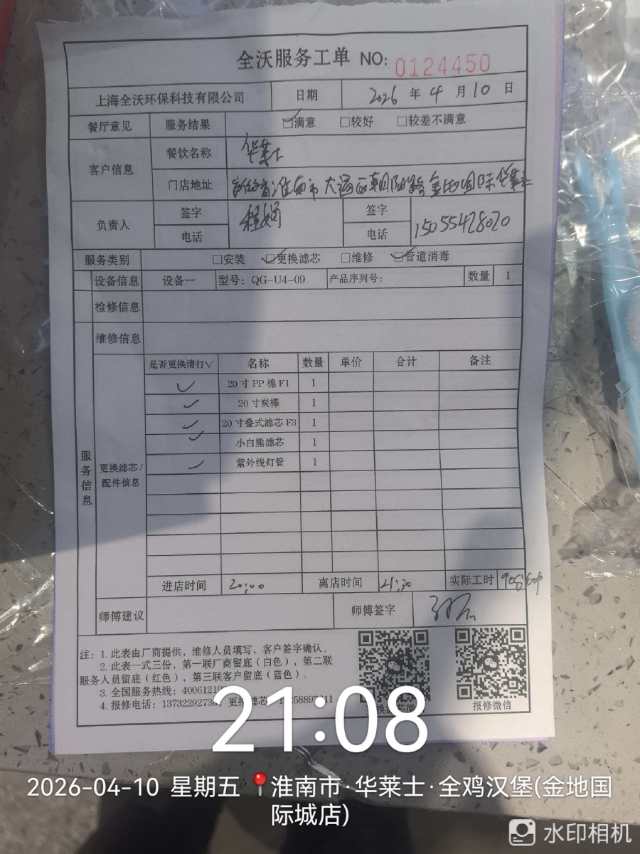 全沃服务工单 NO: 0124450
上海全沃环保科技有限公司 日期 2026 年 4 月 10 日
餐厅意见 服务结果 ☑满意 □较好 □较差不满意
客户信息 餐饮名称 华莱士
门店地址 安徽省淮南市大通区朝阳路金地国际华莱士
负责人 签字 签字
电话 电话 15055428020
服务类别 □安装 ☑更换滤芯 □维修 ☑管道消毒
设备信息 设备一 型号: QG-U4-09 产品序列号: 数量 1
检修信息
维修信息
服务信息
更换滤芯/配件信息
是否更换请打√ 名称 数量 单价 合计 备注
✓ 20寸PP棉F1 1
✓ 20寸炭棒 1
✓ 20寸叠式滤芯F3 1
✓ 小白熊滤芯 1
✓ 紫外线灯管 1
进店时间 20:00 离店时间 21:30 实际工时
师傅建议 师傅签字
注: 1. 此表由厂商提供, 维修人员填写, 客户签字确认.
2. 此表一式三份, 第一联厂商留底(白色), 第二联
服务人员留底(红色), 第三联客户留底(蓝色).
3. 全国服务热线: 4006121
4. 报修电话: 137329273 更换滤芯
报修微信
21:08
2026-04-10 星期五 淮南市·华莱士·全鸡汉堡(金地国
际城店)
水印相机